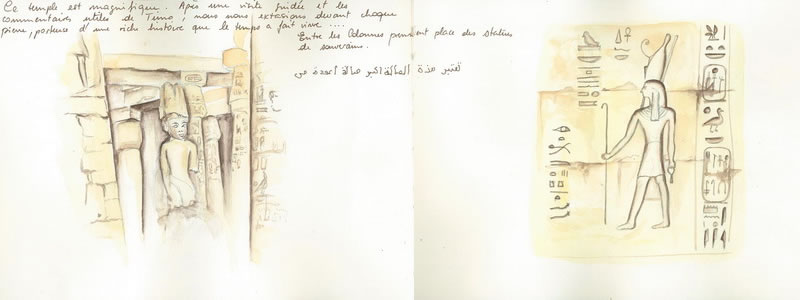 Ce temple est magnifique. Après une visite guidée et les
commentaires utiles de Timo, nous nous extasions devant chaque
pierre, porteuse d'une riche histoire que le temps a fait vivre ....
Entre les colonnes prennent place des statues
de souverains.
تعتبر هذة الصالة اكبر صالة أعمدة في